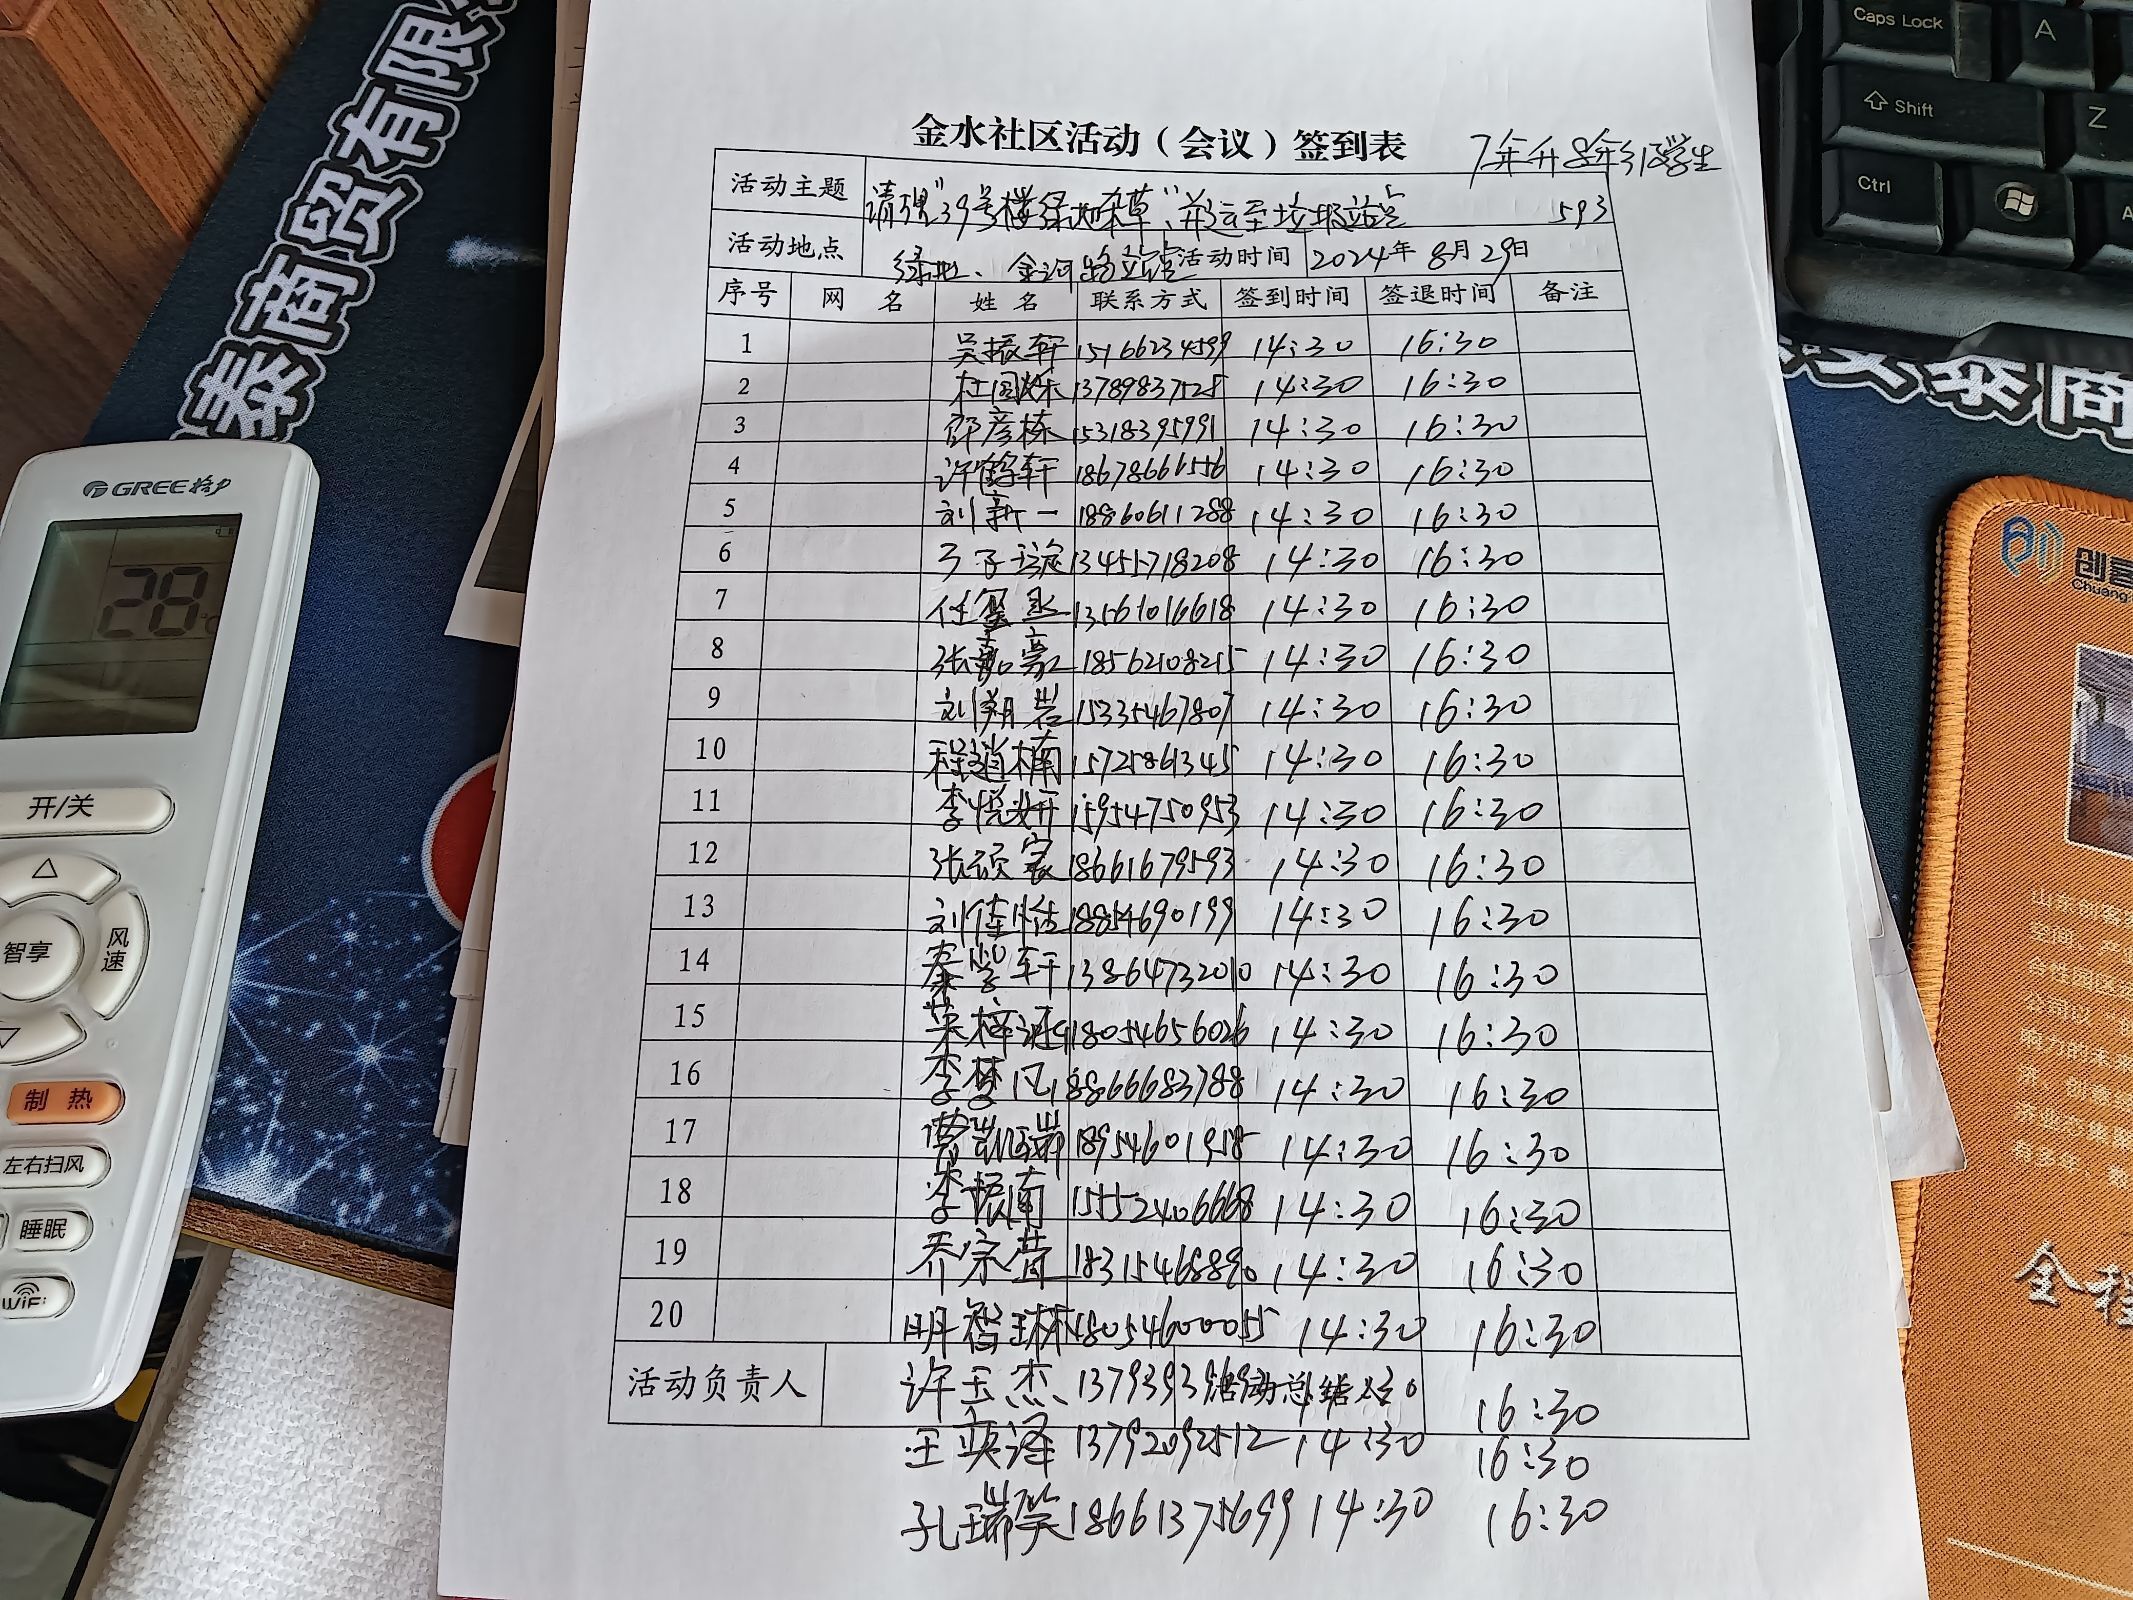 金水社区活动（会议）签到表
7年升8年引 学生
活动主题 清理"39号楼绿地杂草"、并运至垃圾站点 593
活动地点 绿地、金河 活动时间 2024年8月29日
序号 网 名 姓 名 联系方式 签到时间 签退时间 备注
1 吴振轩 15166234599 14:30 16:30
2 杜国烁 13789837525 14:30 16:30
3 邵彦栋 15318395991 14:30 16:30
4 许鹤轩 18678666556 14:30 16:30
5 刘新一 18860611288 14:30 16:30
6 子璇 13455718208 14:30 16:30
7 任玺丞 13561016618 14:30 16:30
8 张嘉豪 18562108215 14:30 16:30
9 刘翔岩 15335467807 14:30 16:30
10 程逍楠 15725861345 14:30 16:30
11 李悦妍 15954750953 14:30 16:30
12 张硕家 18661679593 14:30 16:30
13 刘佳怡 18854690199 14:30 16:30
14 秦学轩 13864732010 14:30 16:30
15 荣梓涵 18054656026 14:30 16:30
16 李梦凡 18866683788 14:30 16:30
17 曹凯瑞 18954601958 14:30 16:30
18 李振南 15552406668 14:30 16:30
19 乔宗营 18315468890 14:30 16:30
20 明智琳 18054600055 14:30 16:30
活动负责人 许玉杰 活动总结人 16:30
王奕泽 13792092512 14:30 16:30
孔瑞笑 18661375699 14:30 16:30
泰商贸有限
GREE格力
28
开/关
智享
风速
制热
左右扫风
睡眠
WiFi
Caps Lock
A
Shift
Z
Ctrl
泰商
创客
Chuang
全程